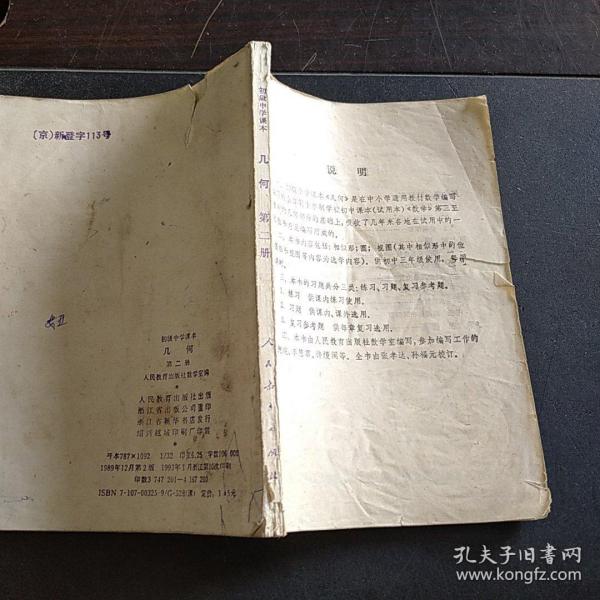 (京)新登字113号
初级中学课本
几何
第二册
人民教育出版社数学室编
人民教育出版社出版
浙江省出版公司重印
浙江省新华书店发行
绍兴越城印刷厂印装
开本787×1092 1/32 印张6.25 字数106 000
1989年12月第2版 1993年1月浙江第10次印刷
印数3 747 201—4 167 200
ISBN 7-107-00325-9/G·528(课) 定价
初级中学课本 几何 第二册
说明
中学课本《几何》是在中小学通用教材数学编写
学初中课本(试用本)《数学》第三至
的基础上,吸收了几年来各地在试用中的一
编写而成的。
本书内容包括:相似形;圆;视图(其中相似形中的位
和视图等内容为选学内容),供初中三年级使用,
三、本书的习题共分三类:练习、习题、复习参考题。
1. 练习 供课内练习使用。
2. 习题 供课内、课外选用。
3. 复习参考题 供每章复习选用。
本书由人民教育出版社数学室编写,参加编写工作的
李慧君、许缦阁等。全书由张孝达、孙福元校订。
孔夫子旧书网
www.kongfz.com